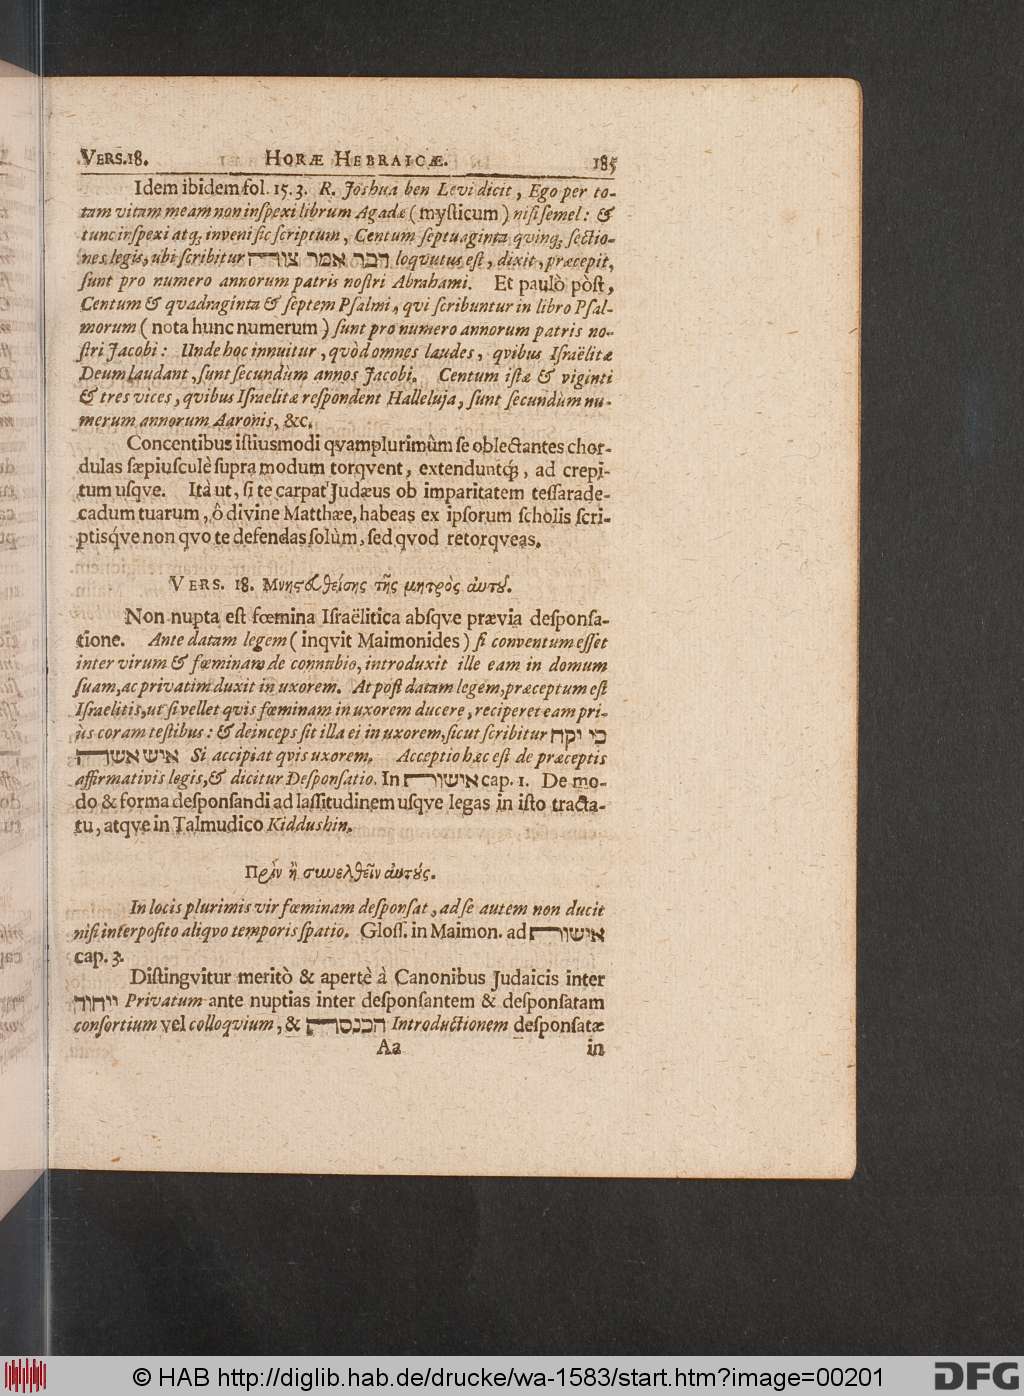 VERS. 18. HORÆ HEBRAICÆ. 185
Idem ibidem fol. 15. 3. R. Joshua ben Levi dicit, Ego per to-
tam vitam meam non inſpexi librum Agadæ (myſticum) niſi ſemel: &
tunc inſpexi atq; inveni ſic ſcriptum, Centum ſeptuaginta qvinq; ſectio-
nes legis, ubi ſcribitur דבר אמר צוה loqvutus eſt, dixit, præcepit,
ſunt pro numero annorum patris noſtri Abrahami. Et paulò pòſt,
Centum & qvadraginta & ſeptem Pſalmi, qvi ſcribuntur in libro Pſal-
morum (nota hunc numerum) ſunt pro numero annorum patris no-
ſtri Jacobi: Unde hoc innuitur, qvòd omnes laudes, qvibus Iſraëlitæ
Deum laudant, ſunt ſecundùm annos Jacobi. Centum iſtæ & viginti
& tres vices, qvibus Iſraelitæ reſpondent Halleluja, ſunt ſecundùm nu-
merum annorum Aaronis, &c.
Concentibus iſtiusmodi qvamplurimùm ſe oblectantes chor-
dulas ſæpiuſculè ſupra modum torqvent, extenduntq;, ad crepi-
tum uſqve. Ità ut, ſi te carpat Judæus ob imparitatem teſſarade-
cadum tuarum, ô divine Matthæe, habeas ex ipſorum ſcholis ſcri-
ptisq́ve non qvo te defendas ſolùm, ſed qvod retorqveas.
VERS. 18. Μνηστευθείσης τῆς μητρὸς ἀυτοῦ.
Non nupta eſt fœmina Iſraëlitica abſqve prævia deſponſa-
tione. Ante datam legem (inqvit Maimonides) ſi conventum eſſet
inter virum & fœminam de connubio, introduxit ille eam in domum
ſuam, ac privatim duxit in uxorem. At poſt datam legem, præceptum eſt
Iſraelitis, ut ſi vellet qvis fœminam in uxorem ducere, reciperet eam pri-
ùs coram teſtibus: & deinceps ſit illa ei in uxorem, ſicut ſcribitur כי יקח
איש אשה Si accipiat qvis uxorem. Acceptio hæc eſt de præceptis
affirmativis legis, & dicitur Deſponſatio. In אישות cap. 1. De mo-
do & forma deſponſandi ad laſſitudinem uſqve legas in iſto tracta-
tu, atqve in Talmudico Kiddushin.
Πρὶν ἢ συνελθεῖν ἀυτούς.
In locis plurimis vir fœminam deſponſat, ad ſe autem non ducit
niſi interpoſito aliqvo temporis ſpatio. Gloſſ. in Maimon. ad אישות
cap. 3.
Diſtingvitur meritò & apertè à Canonibus Judaicis inter
ייחוד Privatum ante nuptias inter deſponſantem & deſponſatam
conſortium vel colloqvium, & הכנסה Introductionem deſponſatæ
Aa in
© HAB http://diglib.hab.de/drucke/wa-1583/start.htm?image=00201 DFG